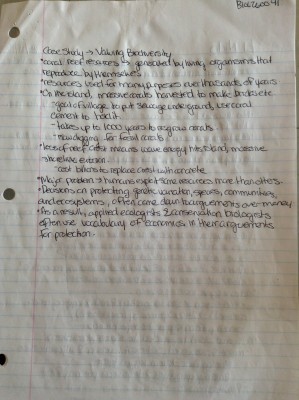 BIOL 2600 41
Case Study → Valuing Biodiversity
• coral reef resources → generated by living organisms that
reproduce by themselves
• resources used for many purposes over thousands of years
• On the island, massive corals harvested to make bricks etc
- goal of village to put sewage underground, use coral
cement to do it
- takes up to 1000 years to regrow corals
- now digging for fossil corals
• loss of reef crest means wave energy hits island, massive
shoreline erosion
- cost billions to replace crest with concrete
• Major problem → humans exploit some resources more than others
• Decisions on protecting genetic variation, species, communities,
and ecosystems, often come down to arguements over money
• As a result, applied ecologists & conservation biologists
often use vocabulary of economics in their arguements
for protection.